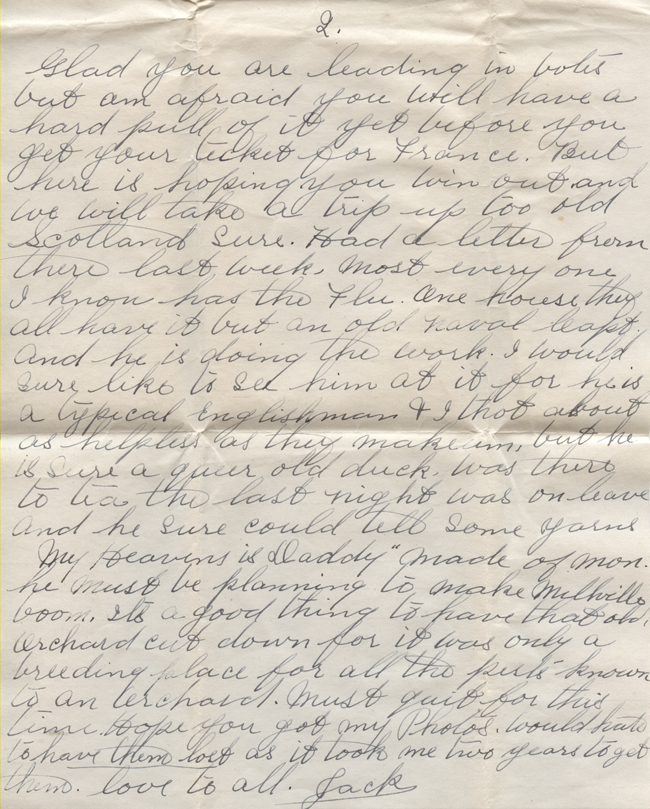 2.
Glad you are leading in votes
but am afraid you will have a
hard pull of it yet before you
get your ticket for France. But
here is hoping you win out and
we will take a trip up too old
Scotland sure. Had a letter from
there last week. Most every one
I know has the Flu. One house they
all have it but an old naval Capt.
and he is doing the work. I would
sure like to see him at it for he is
a typical Englishman & I thot about
as helpless as they make um, but he
is sure a queer old duck. Was there
to tea the last night was on leave
and he sure could tell some yarns
My Heavens is "Daddy" made of mon.
he must be planning to make Millville
boom. Its a good thing to have that old
orchard cut down for it was only a
breeding place for all the pests known
to an orchard. Must quit for this
time. Hope you got my Photos. would hate
to have them lost as it took me two years to get
them. love to all. Jack